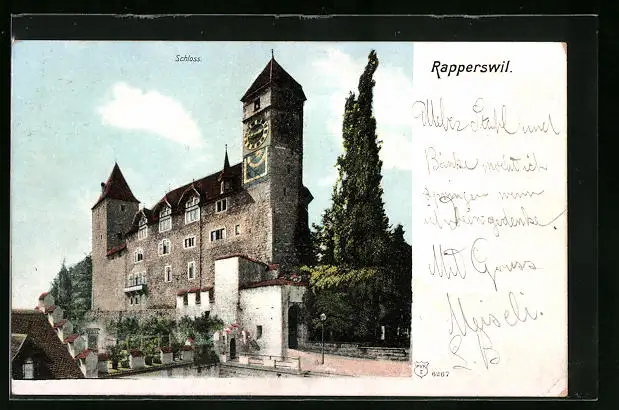 Schloss.
Rapperswil.
Ueber Stuhl und
Bänke möcht ich
springen wenn
ich
Mit Gruss
Meiseli.
6267